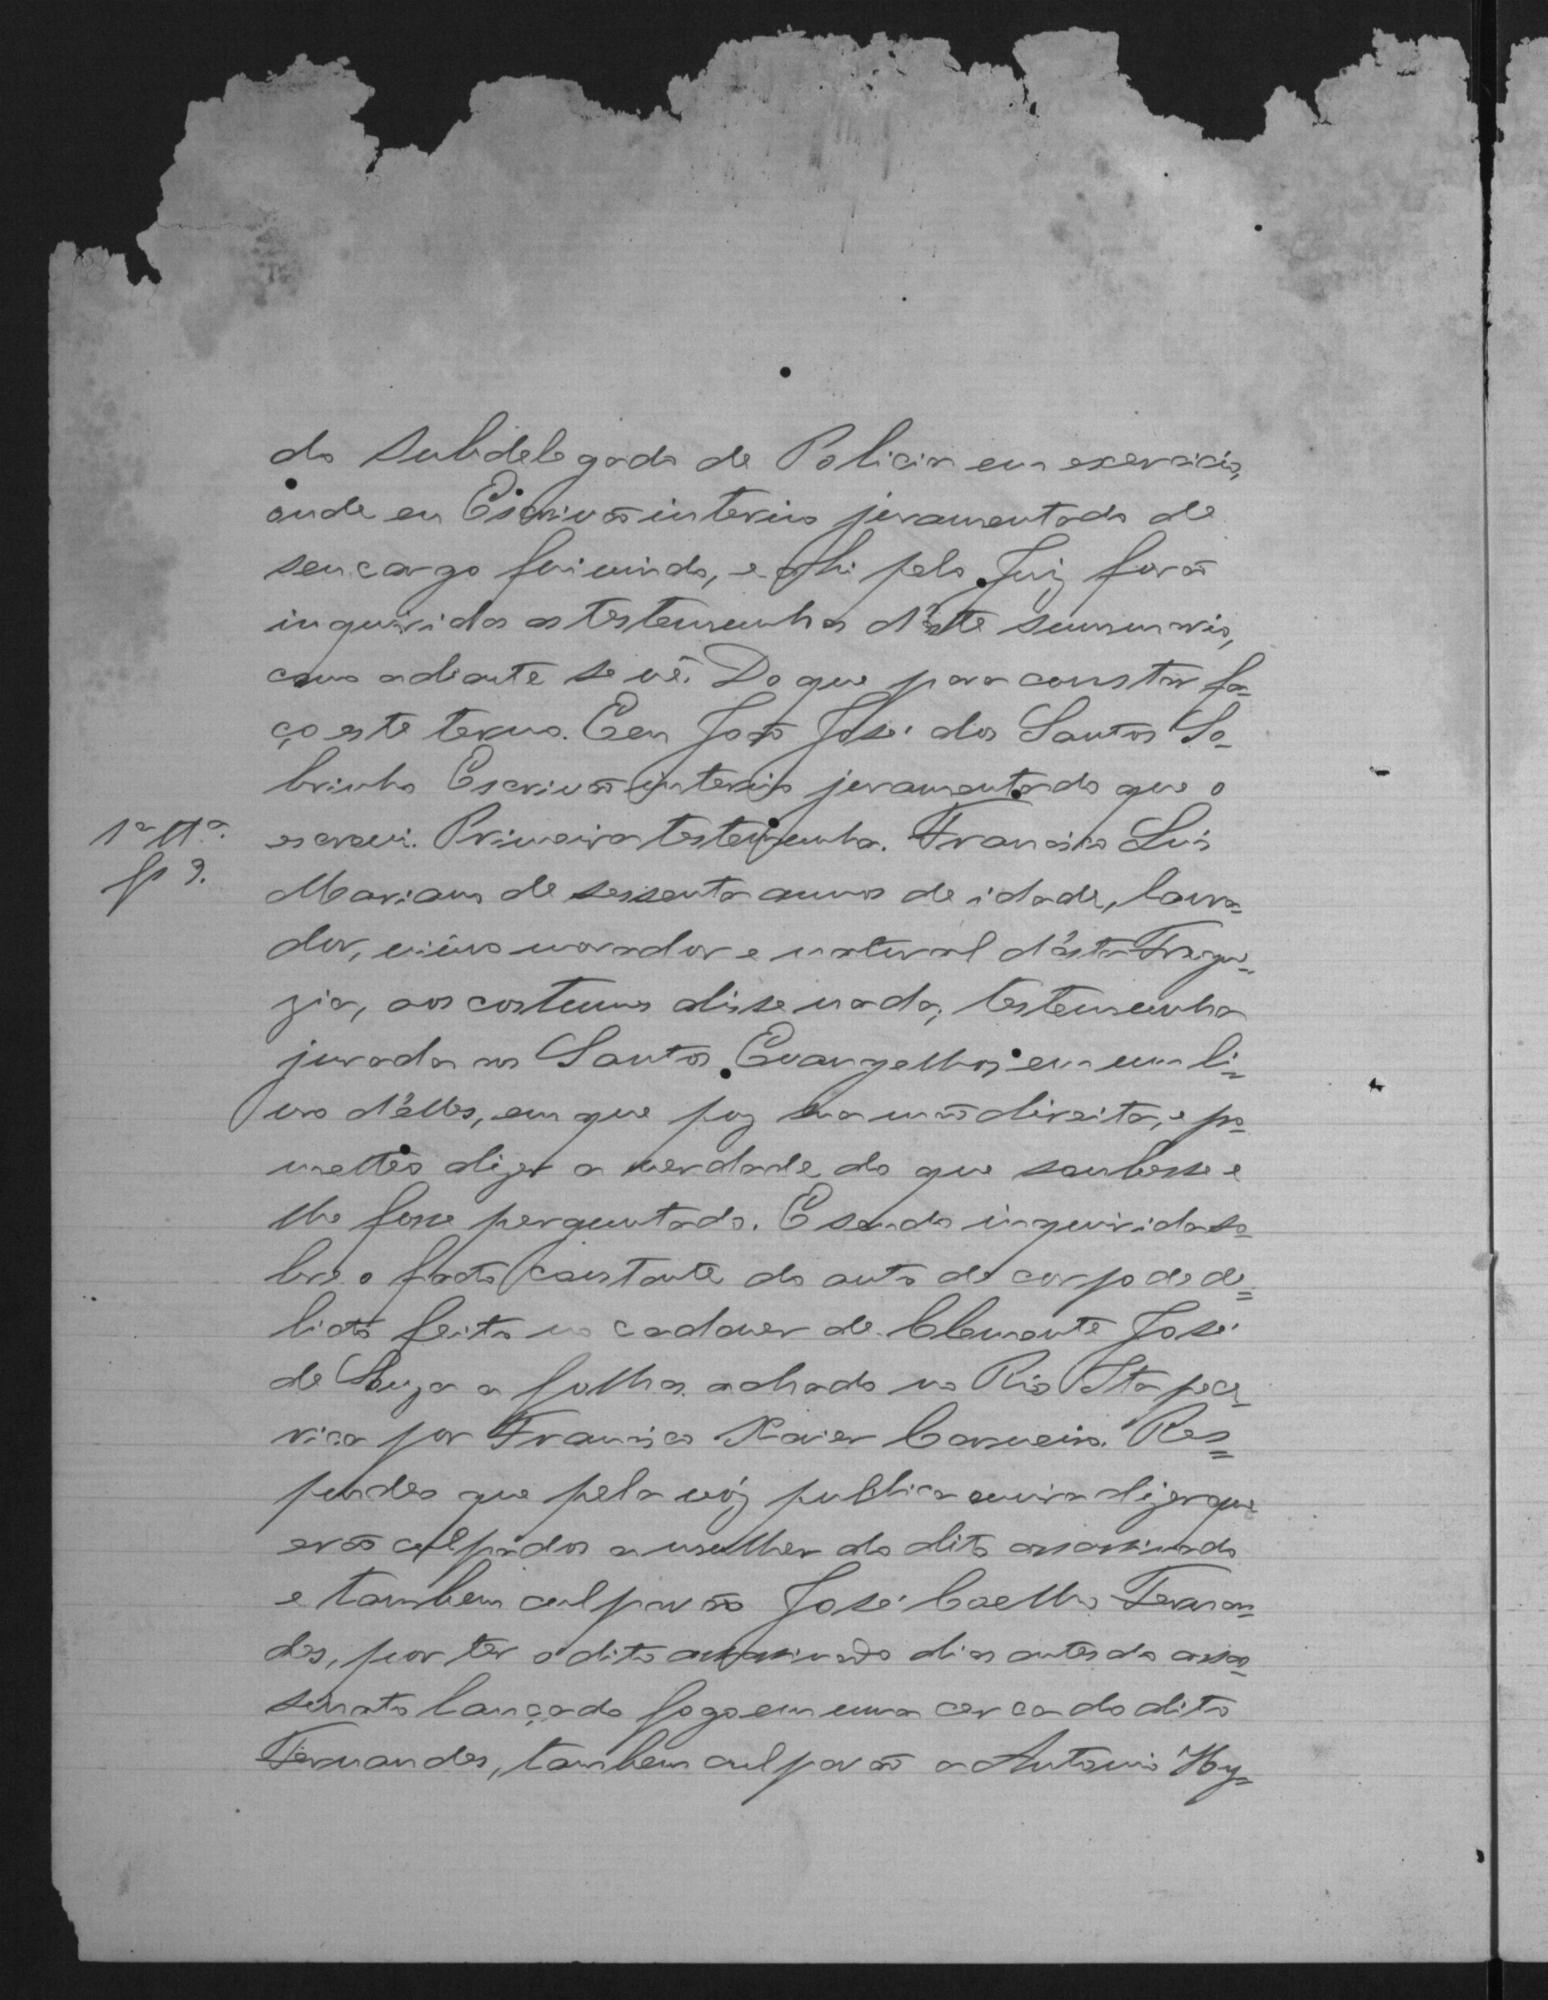 do Subdelegado de Policia em exercicio,
onde eu Escrivão interino juramentado de
seu cargo fui vindo, e ahi pelo Juiz forão
inquiridas as testemunhas d'este summario,
como adiante se vê. Do que para constar fa-
ço este termo. Eeu João José dos Santos So-
brinho Escrivão interino juramentado que o
1ª Tª.
escrevi. Primeira testemunha. Francisco Luis
fs 9.
Mariano de sessenta annos de idade, lavra-
dor, viúvo morador e natural d'ésta Fregue-
zia, aos costumes disse nada, testemunha
jurada aos Santos Evangelhos em um li-
vro d'élles, em que poz sua mão direita, e pro-
metteo dizer a verdade do que soubesse e
lhe fosse perguntado. E sendo inquirida so-
bre o facto constante do auto de corpo de de-
licto feito no cadaver de Clemente José
de Souza a folhas achado no Rio Itapece-
rica por Francisco Xavier Carneiro. Res-
pondeo que pela vóz publica ouvira dizer que
erão culpados a mulher do dito assassinado
e tambem culpavão José Coelho Fernan-
des, por ter o dito assassinado dias antes do assas-
sinato lançado fogo em uma cerca do dito
Fernandes, tambem culpavão a Antonio Hy-